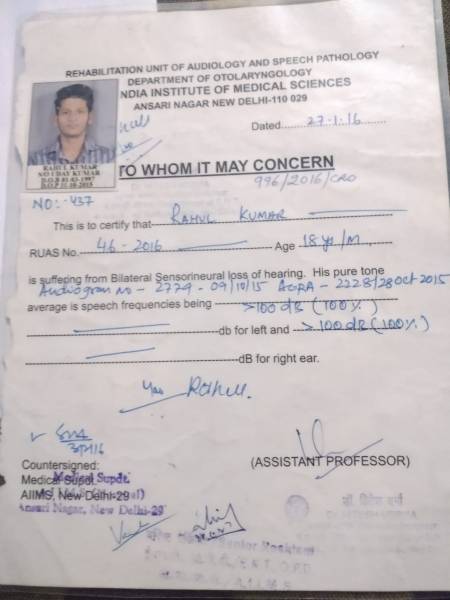 REHABILITATION UNIT OF AUDIOLOGY AND SPEECH PATHOLOGY
DEPARTMENT OF OTOLARYNGOLOGY
INDIA INSTITUTE OF MEDICAL SCIENCES
ANSARI NAGAR NEW DELHI-110 029
Dated 27-1-16
RAHUL KUMAR
S/O UDAY KUMAR
D.O.B 01-03-1997
D.O.P 11-10-2015
TO WHOM IT MAY CONCERN
996/2016/CRO
NO:-437
This is to certify that RAHUL KUMAR
RUAS No. 46-2016 Age 18 ys/M
is suffering from Bilateral Sensorineural loss of hearing. His pure tone
Audiogram no - 2779 - 09/10/15 - 2228/28 Oct 2015
average is speech frequencies being >100 dB (100%)
db for left and >100 dB (100%)
dB for right ear.
Rahul
Countersigned:
Medical Supdt.
Medical Supdt.
AIIMS, New Delhi-29
Ansari Nagar, New Delhi-29
(ASSISTANT PROFESSOR)
Senior Resident